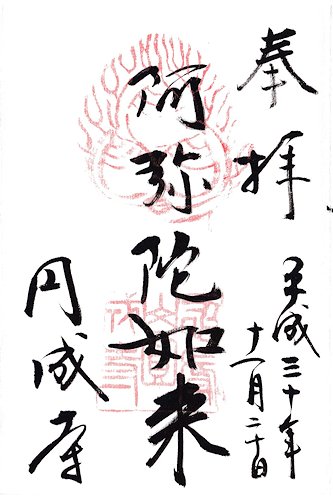 奉拝
平成三十年
十一月二十日
阿弥陀如来
円成寺